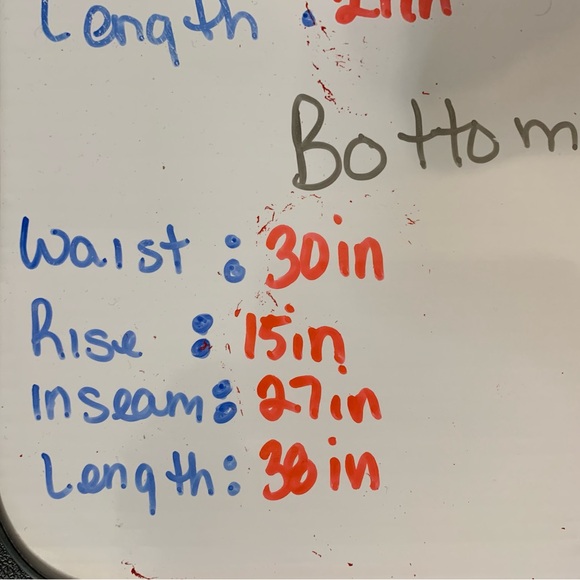 Length :
Bottom
Waist : 30in
Rise : 15in
Inseam: 27in
Length: 38in